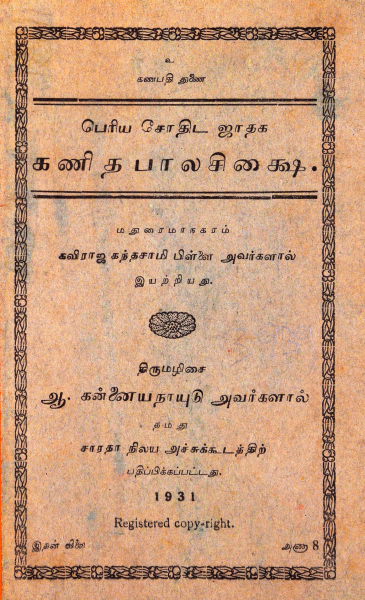 உ
கணபதி துணை
பெரிய சோதிட ஜாதக
கணிதபாலசிக்ஷை.
மதுரைமாநகரம்
கவிராஜ கந்தசாமி பிள்ளை அவர்களால்
இயற்றியது.
திருமழிசை
ஆ. கன்னையநாயுடு அவர்களால்
தமது
சாரதா நிலய அச்சுக்கூடத்திற்
பதிப்பிக்கப்பட்டது.
1931
Registered copy-right.
இதன் விலை அணா 8